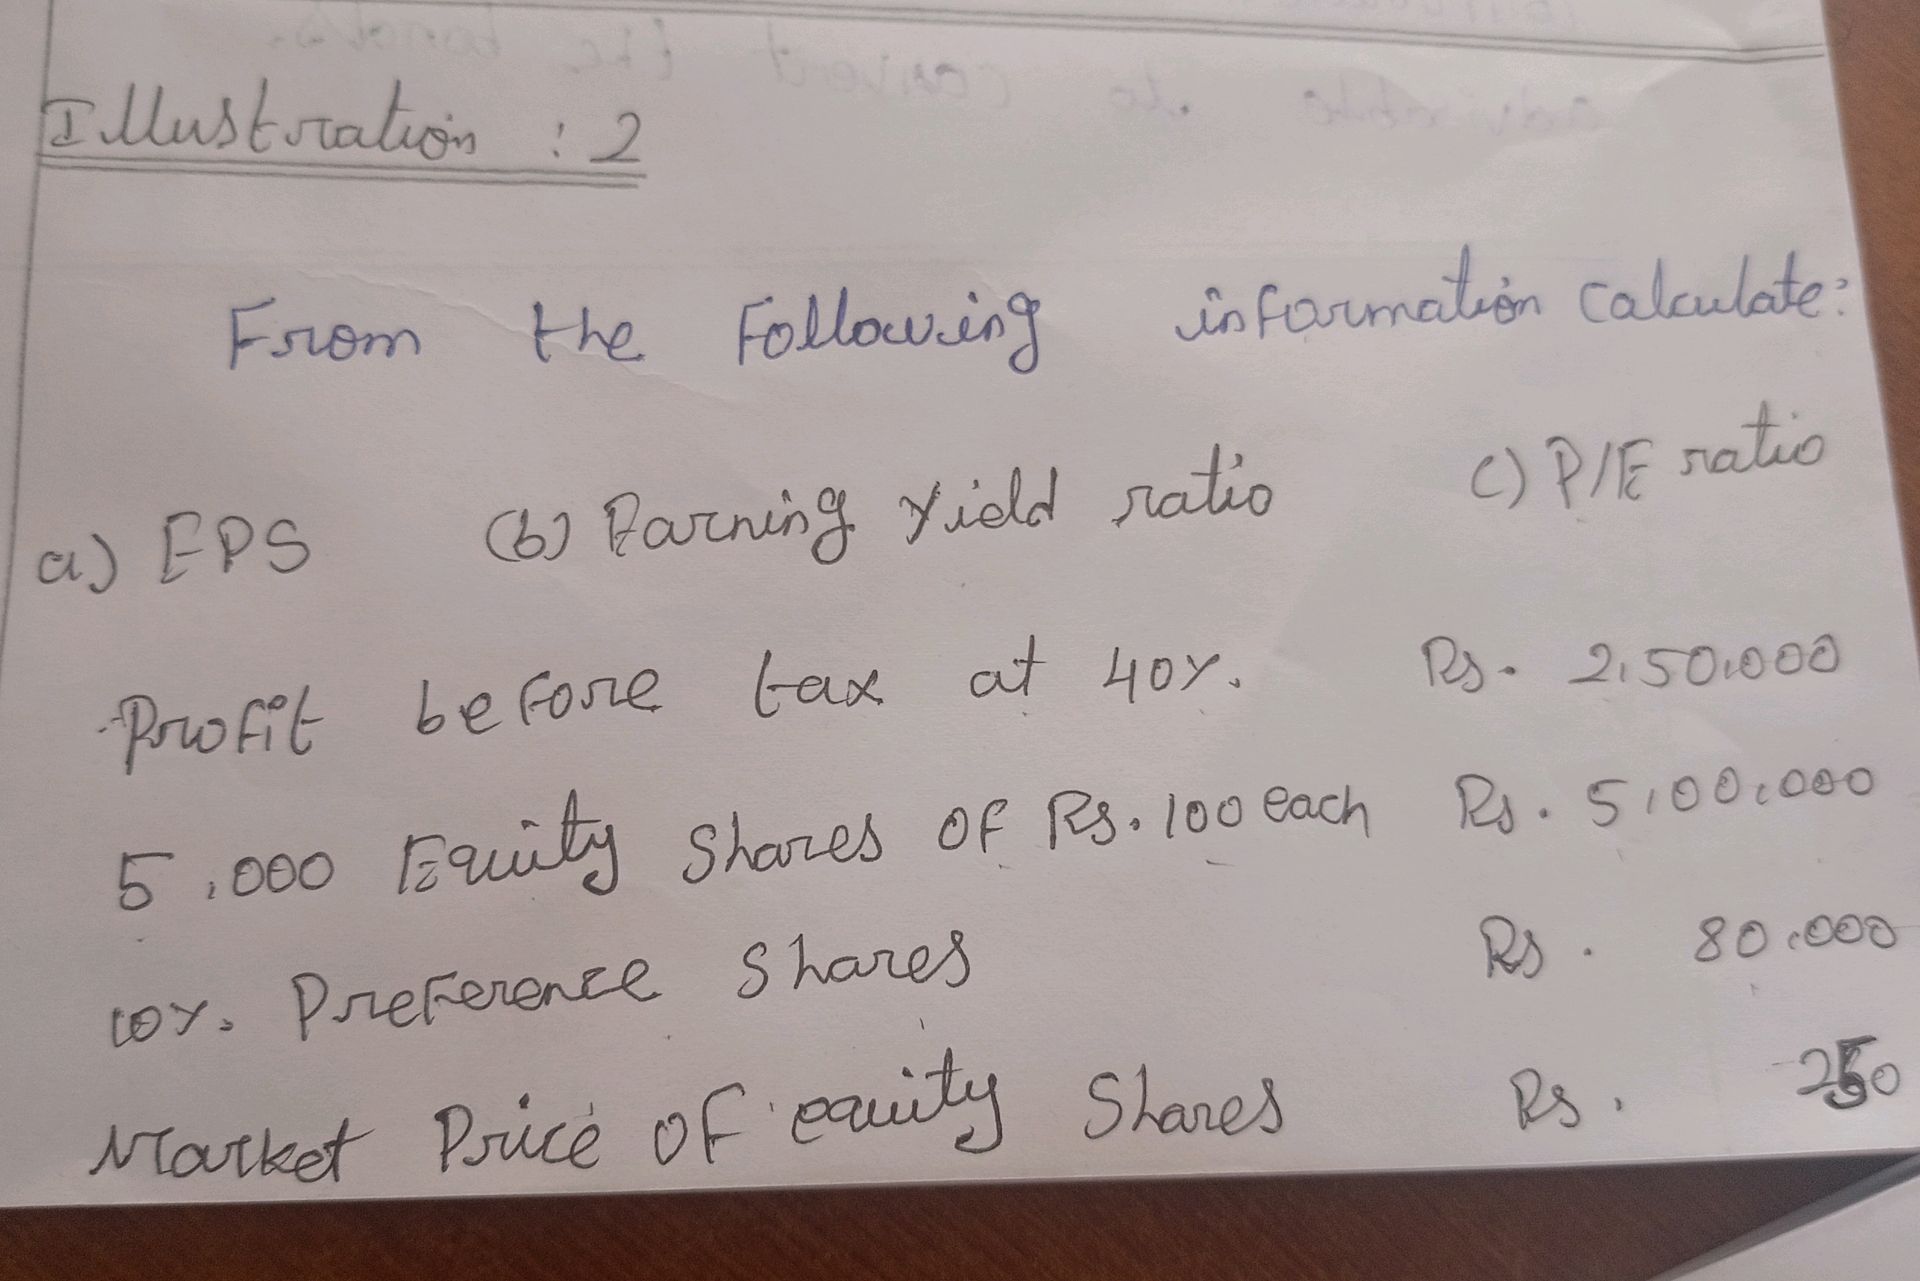 Illustration : 2
From the Following information calculate:
a) EPS (b) Earning Yield ratio c) P/E ratio
Profit before tax at 40%. Rs. 2,50,000
5,000 Equity Shares OF Rs. 100 each Rs. 5,00,000
10%. Preference Shares Rs. 80,000
Market Price of equity Shares Rs. 250